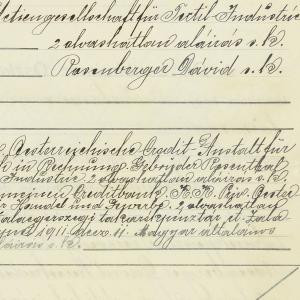 Actiengesellschaft für Textil-Industrie
2 olvashatlan aláírás s.k.
Rosenberger Dávid s.k.
Oesterreichische Credit-Anstalt für
in Rechnung Gebrüder Rosenthal
Industrie 2 olvashatlan aláírás s.k.
Creditbank, K.K. Priv. Oester
Handel und Gewerbe, 2 olvashatlan
Zalaegerszegi takarékpénztár rt. Zala
1911 decz. 11. Magyar általános
aláírás s.k.